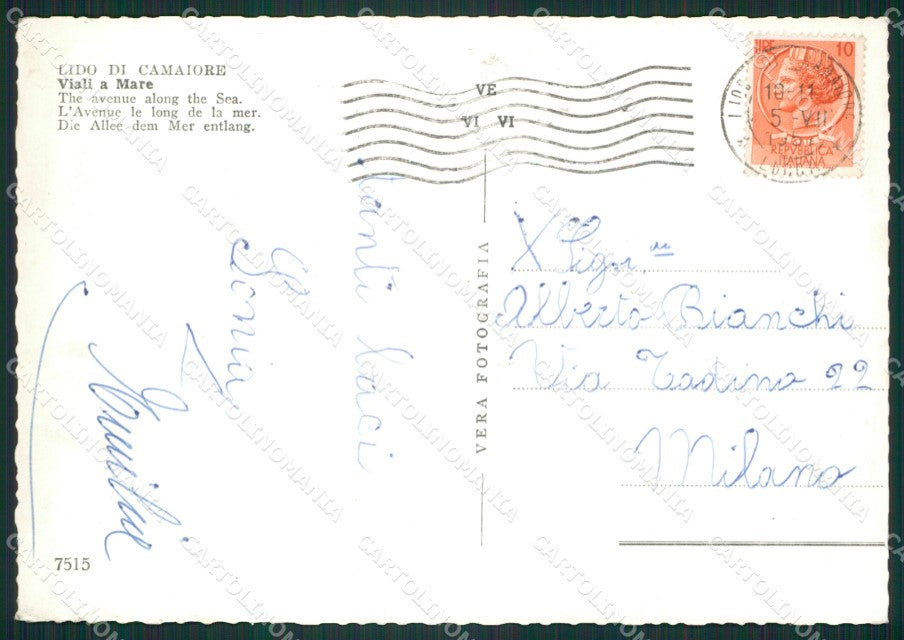 LIDO DI CAMAIORE
Viali a Mare
The avenue along the Sea.
L'Avenue le long de la mer.
Die Allee dem Mer entlang.
VE
VI VI
LIRE 10
18-11
5 VII
REPVBBLICA
ITALIANA
tanti baci
Sonia
VERA FOTOGRAFIA
X Sigr.na
Alberto Bianchi
Via Tadino 22
Milano
7515
CARTOLINOMANIA